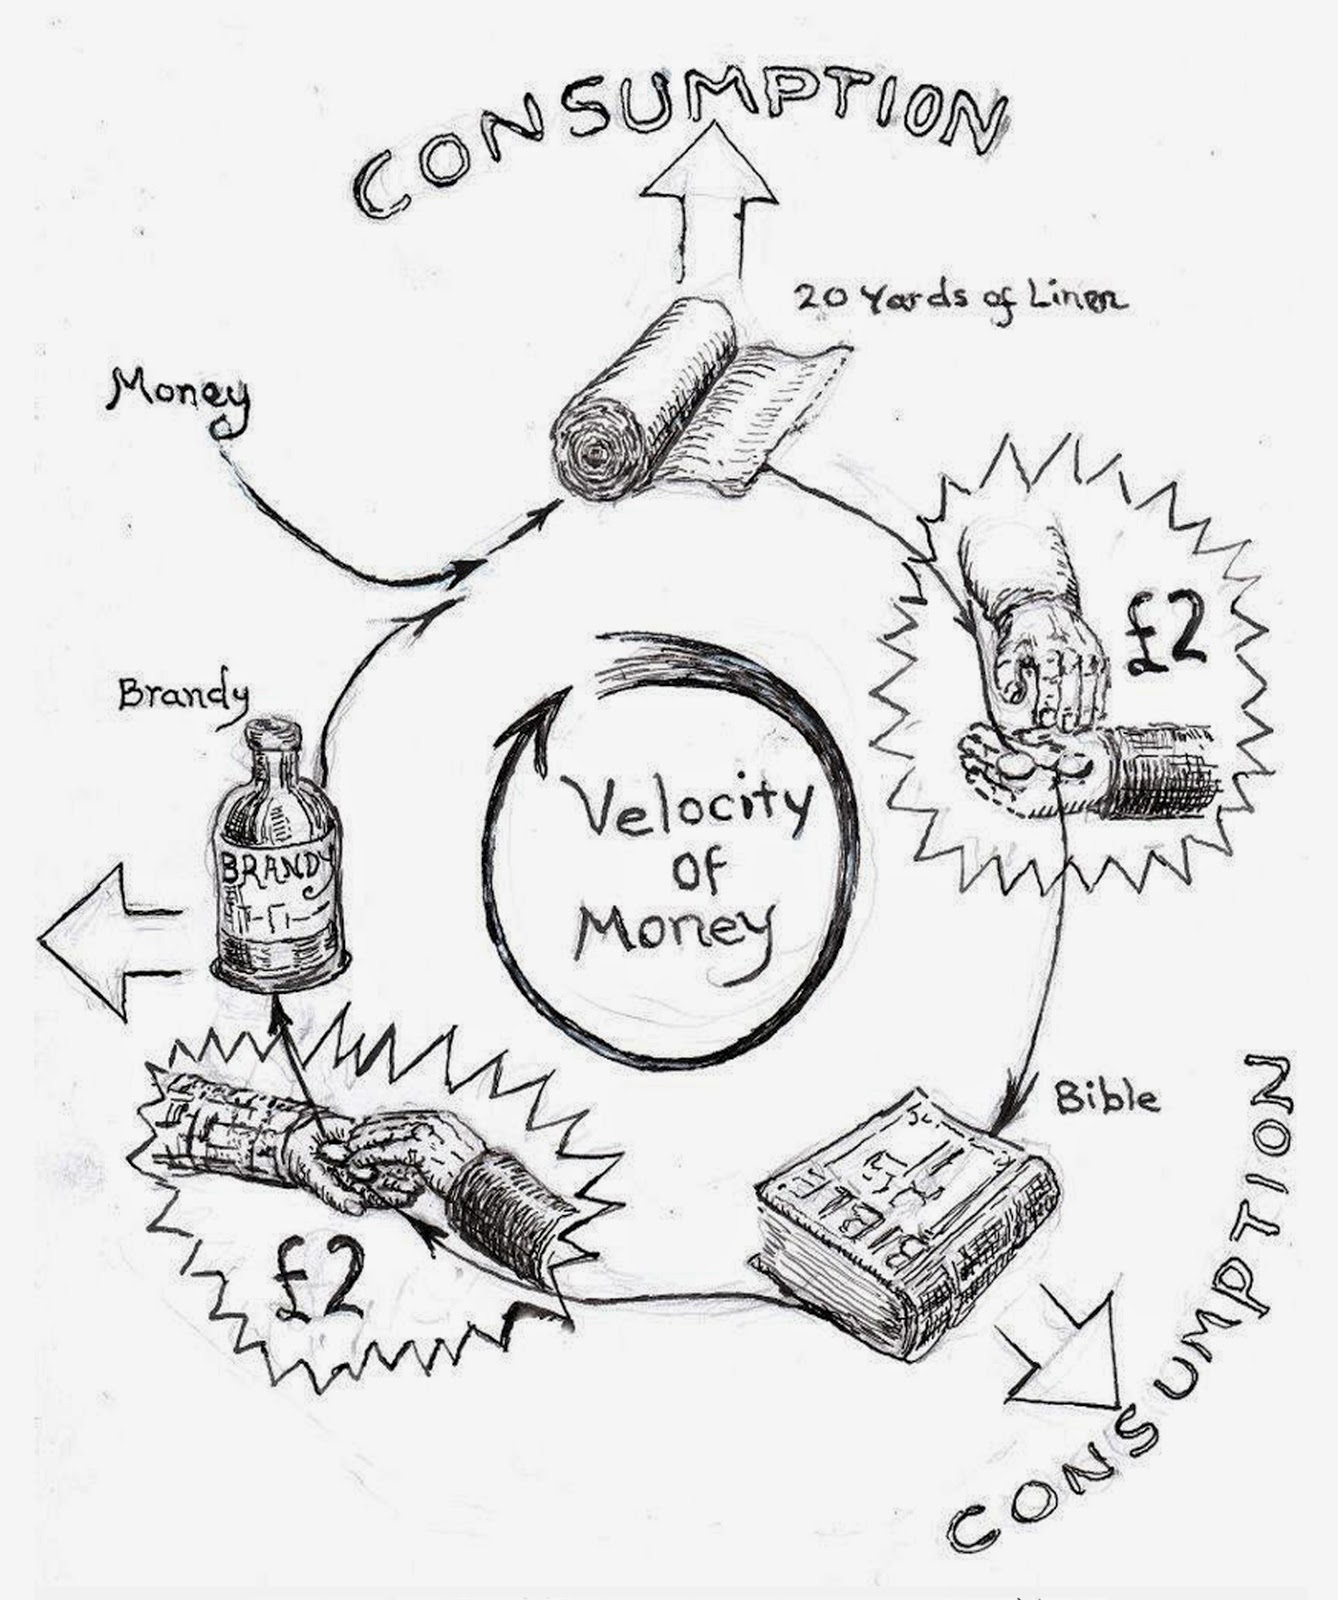 CONSUMPTION
20 Yards of Linen
Money
£2
Brandy
BRANDY
Velocity
of
Money
Bible
BIBLE
£2
CONSUMPTION